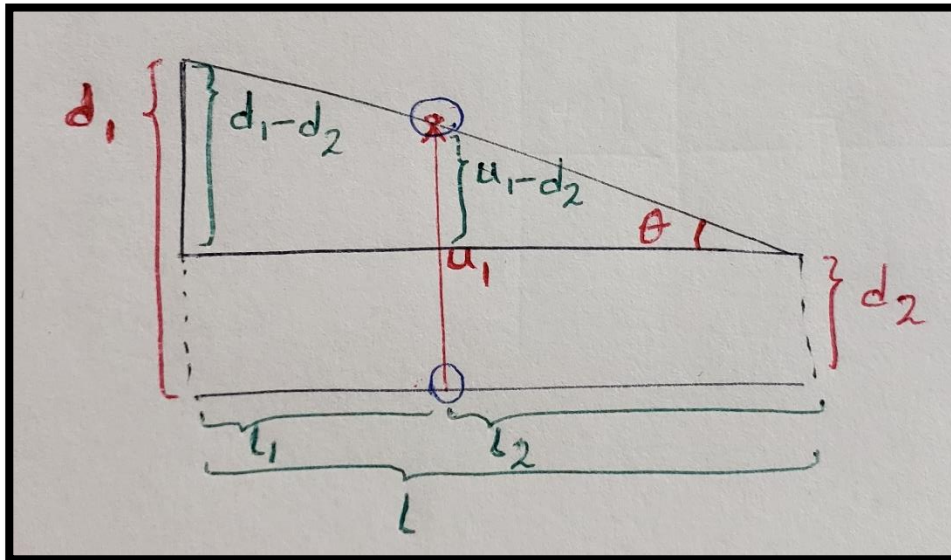 d₁
d₁-d₂
u₁-d₂
θ
u₁
d₂
l₁
l₂
l